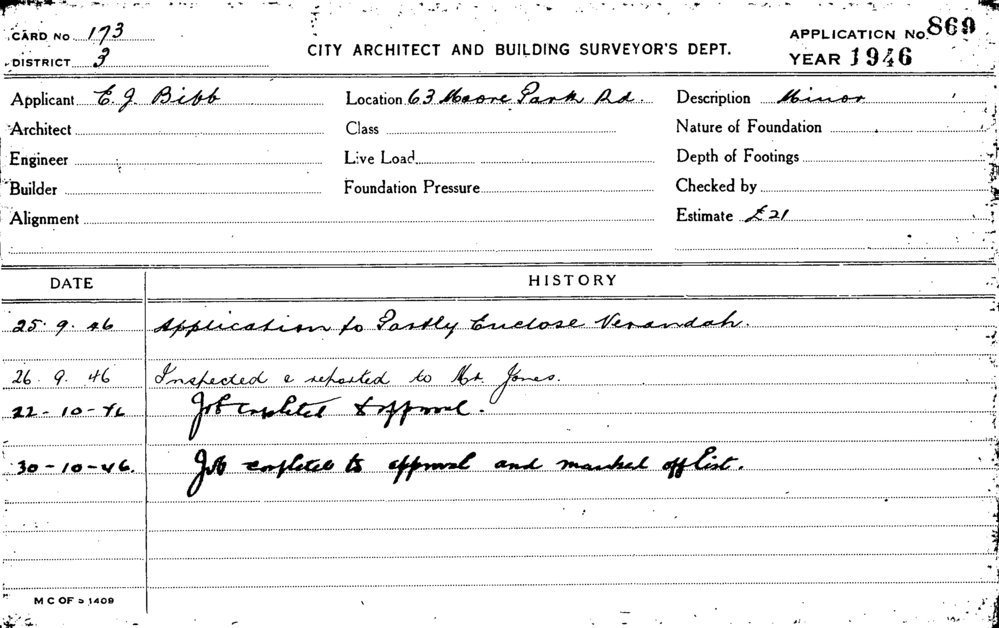 CARD No 173
DISTRICT 3
CITY ARCHITECT AND BUILDING SURVEYOR'S DEPT.
APPLICATION No. 869
YEAR 1946
Applicant E. J. Bibb
Location 63 Moore Park Rd.
Description Minor
Architect
Class
Nature of Foundation
Engineer
Live Load
Depth of Footings
Builder
Foundation Pressure
Checked by
Alignment
Estimate £21
DATE HISTORY
25. 9. 46 Application to Partly Enclose Verandah.
26. 9. 46 Inspected & reported to Mr. Jones.
22-10-46 Job completed to approval.
30-10-46. Job completed to approval and marked off list.
M C OF S 1409